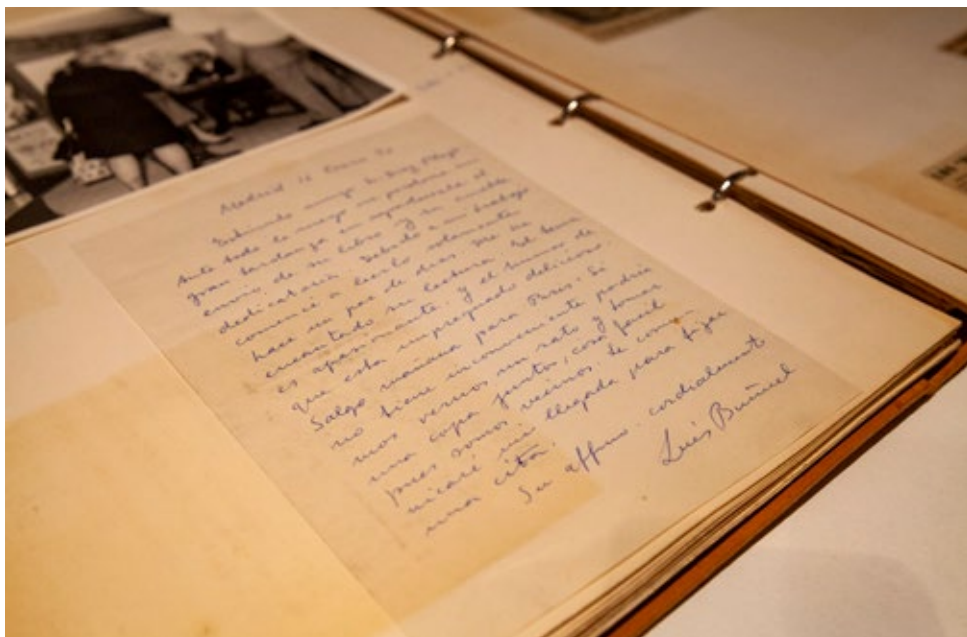 Madrid 16 Enero
Estimado amigo
Ante todo le ruego me perdone mi
gran tardanza en agradecerle el
envío de su libro y su amable
dedicatoria. Debido a mi trabajo
comencé a leerlo solamente
hace un par de días. Me ha
encantado su lectura. El tema
es apasionante. y el humor de
que está impregnado delicioso.
Salgo mañana para Paris. Si
no tiene inconveniente podría
mos vernos un rato y tomar
una copa juntos, cosa fácil
pues somos vecinos. Le comu-
nicaré mi llegada para fijar
una cita.
Su affmo. cordialment
Luis Buñuel